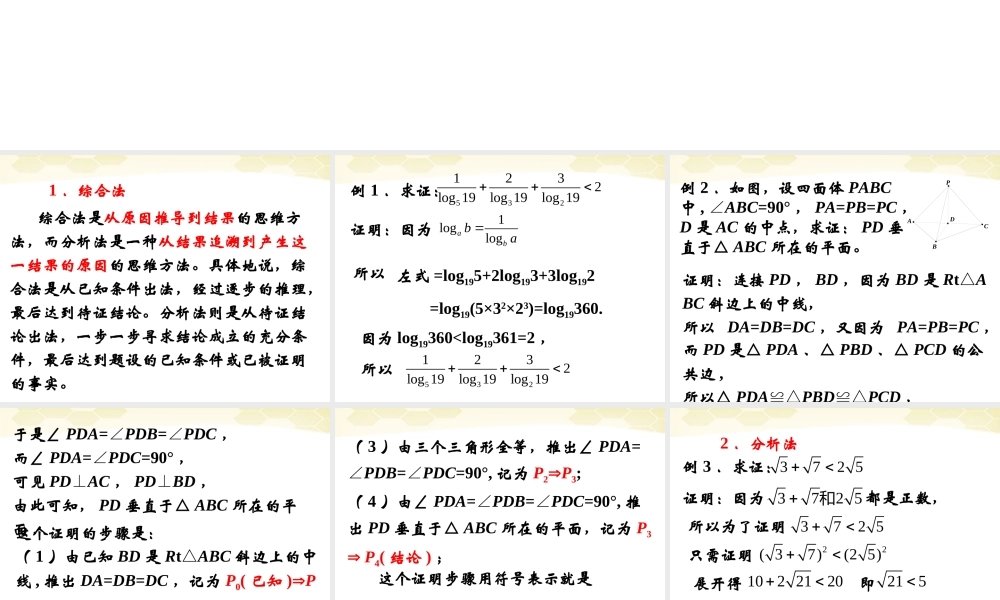 1 . 综合法
综合法是从原因推导到结果的思维方
法，而分析法是一种从结果追溯到产生这
一结果的原因的思维方法。具体地说，综
合法是从已知条件出法，经过逐步的推理，
最后达到待证结论。分析法则是从待证结
论出法，一步一步寻求结论成立的充分条
件，最后达到题设的已知条件或已被证明
的事实。
例 1 . 求证: 1/log₅19 + 2/log₃19 + 3/log₂19 < 2
证明：因为 logₐ b = 1/log_b a
所以 左式 =log₁₉5+2log₁₉3+3log₁₉2
=log₁₉(5×3²×2³)=log₁₉360.
因为 log₁₉360<log₁₉361=2 ，
所以 1/log₅19 + 2/log₃19 + 3/log₂19 < 2
例 2 . 如图，设四面体 PABC
中 , ∠ABC=90° ， PA=PB=PC ，
D 是 AC 的中点，求证： PD 垂
直于△ ABC 所在的平面。
P
A
D
C
B
证明：连接 PD ， BD ，因为 BD 是 Rt△A
BC 斜边上的中线，
所以 DA=DB=DC ，又因为 PA=PB=PC ，
而 PD 是△ PDA 、△ PBD 、△ PCD 的公
共边，
所以△ PDA≌△PBD≌△PCD ，
于是∠ PDA=∠PDB=∠PDC ，
而∠ PDA=∠PDC=90° ，
可见 PD⊥AC ， PD⊥BD ，
由此可知， PD 垂直于△ ABC 所在的平
个证明的步骤是：
（ 1 ）由已知 BD 是 Rt△ABC 斜边上的中
线 , 推出 DA=DB=DC ，记为 P₀( 已知 )⇒P
（ 3 ）由三个三角形全等，推出∠ PDA=
∠PDB=∠PDC=90°, 记为 P₂⇒P₃;
（ 4 ）由∠ PDA=∠PDB=∠PDC=90°, 推
出 PD 垂直于△ ABC 所在的平面，记为 P₃
⇒ P₄( 结论 ) ；
这个证明步骤用符号表示就是
2 . 分析法
例 3 . 求证: √3 + √7 < 2√5
证明：因为 √3 + √7和2√5 都是正数，
所以为了证明 √3 + √7 < 2√5
只需证明 (√3 + √7)² < (2√5)²
展开得 10 + 2√21 < 20 即 √21 < 5